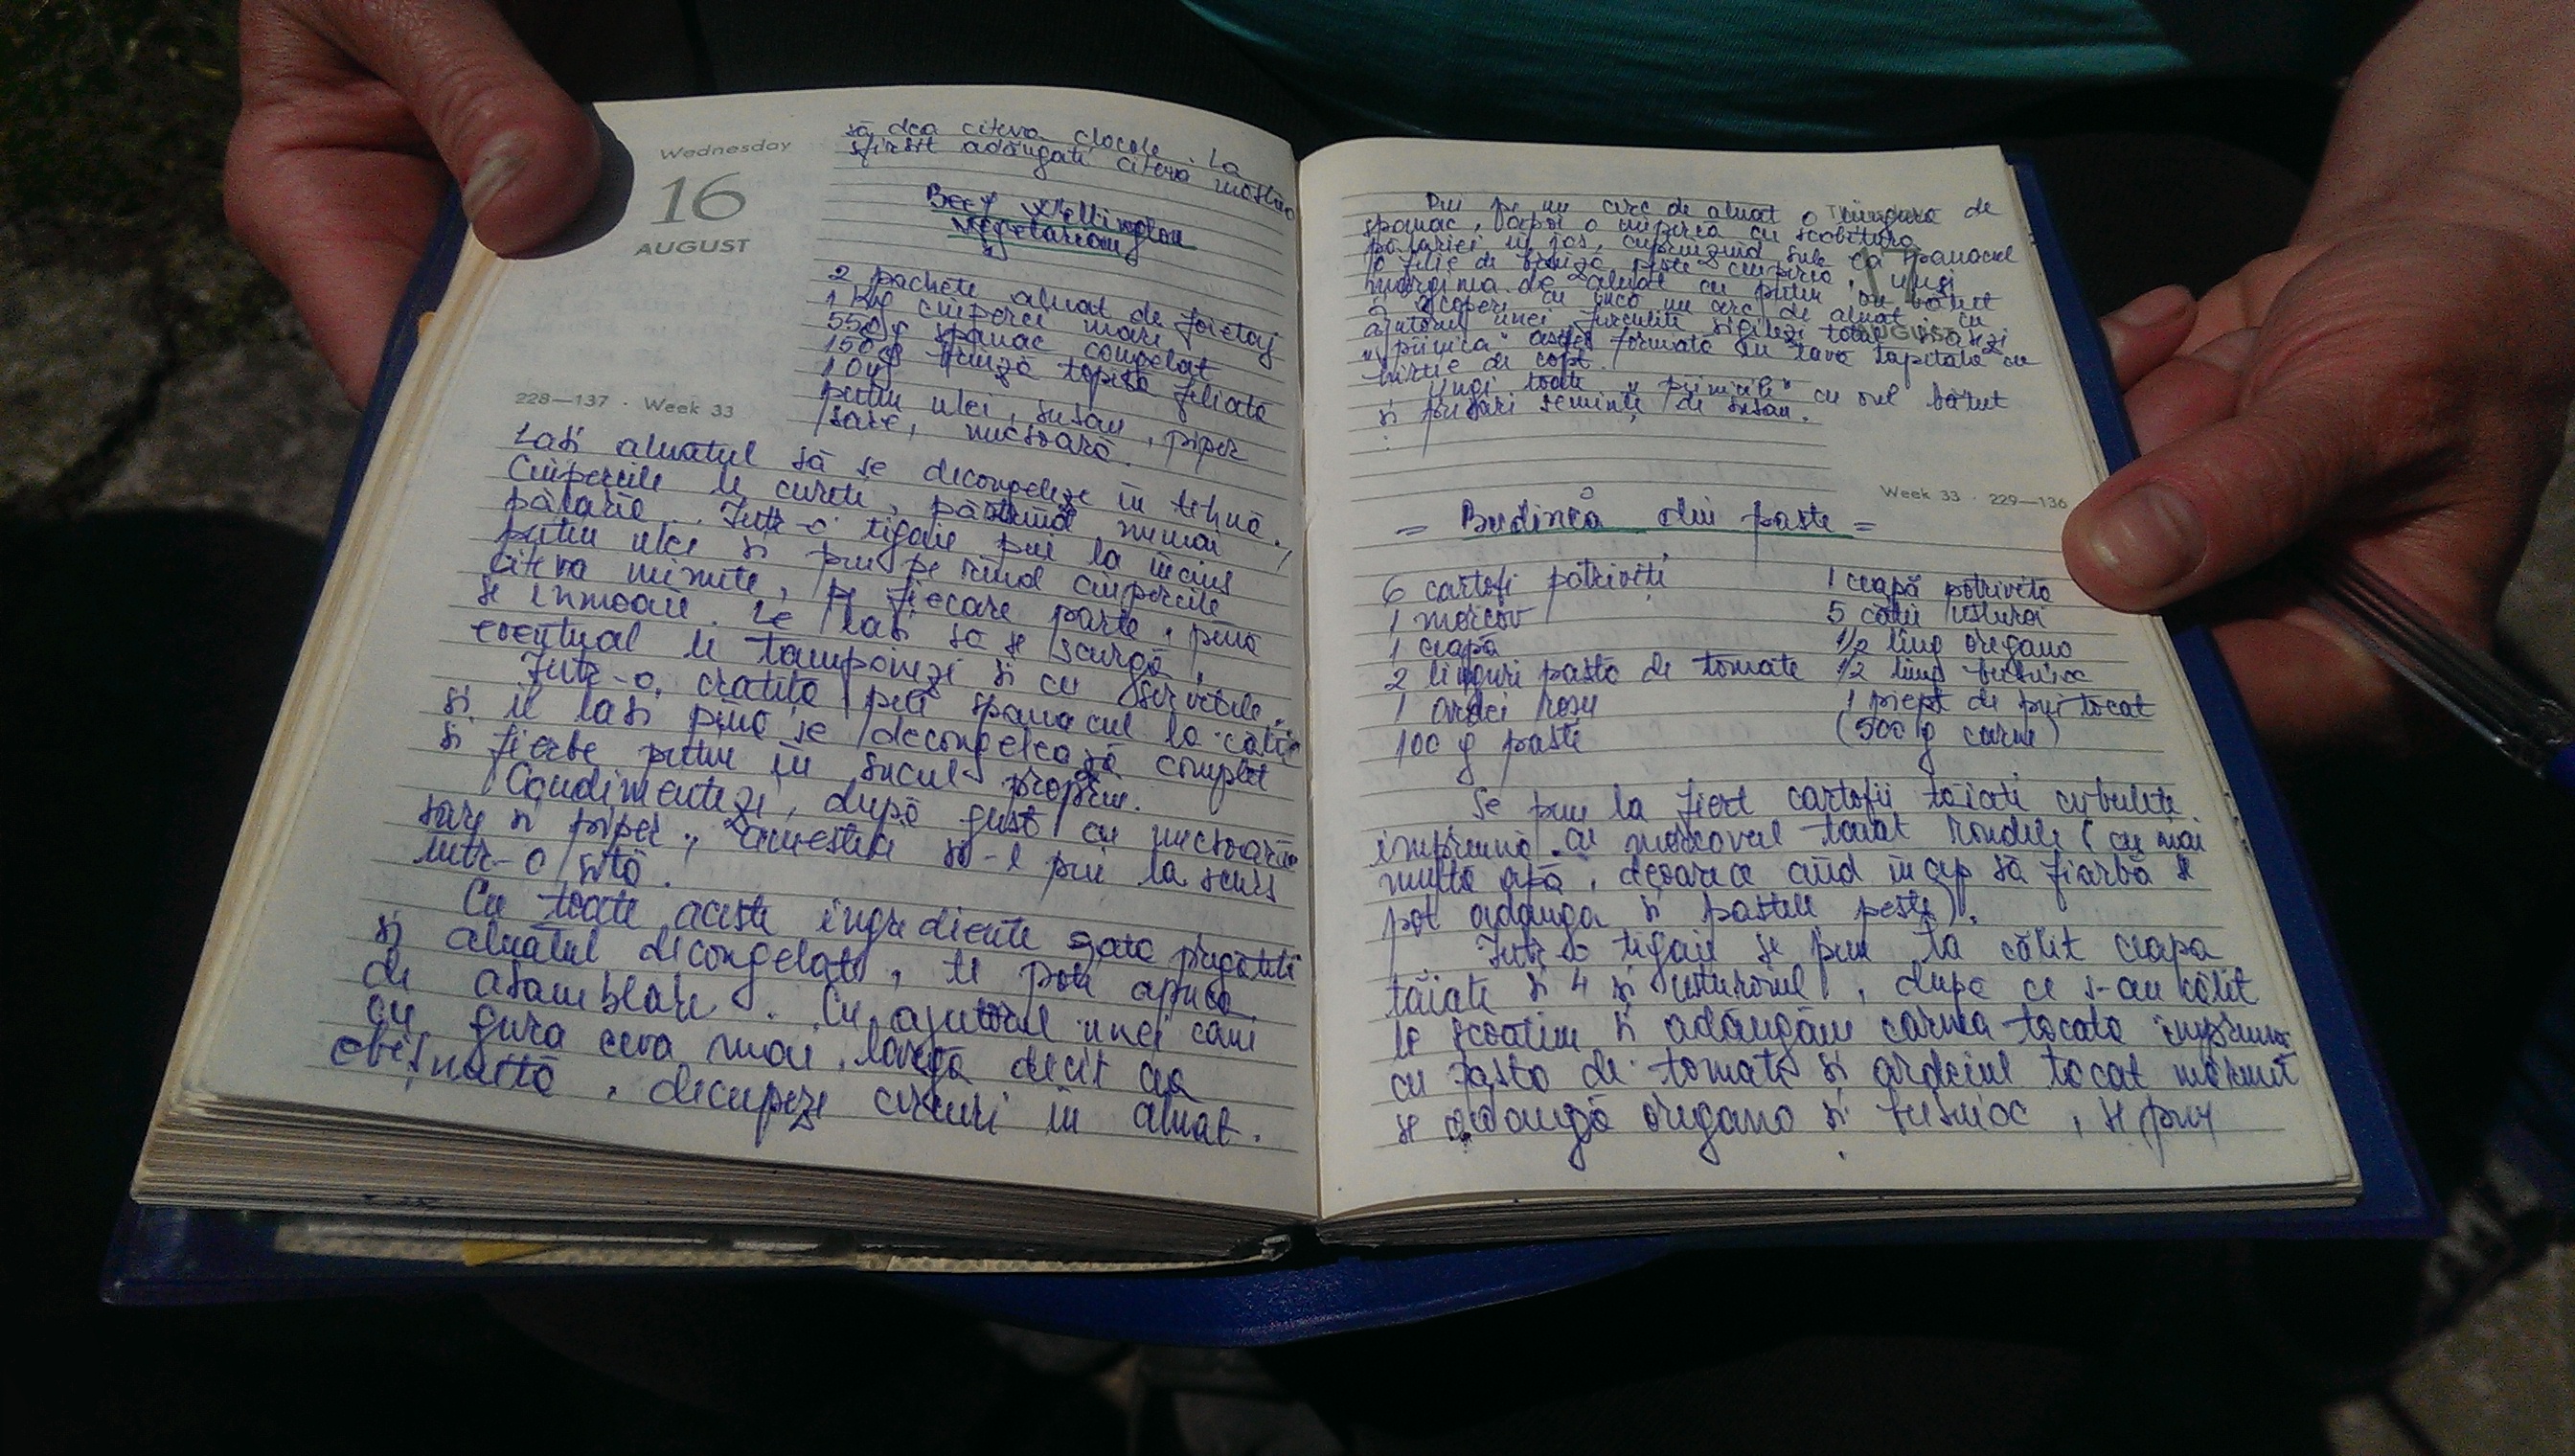 Wednesday
16
AUGUST
228—137 · Week 33
să dea citeva clocote. La
sfirsit adăugati citeva
Beef Wellington
Vegetarian
2 pachete aluat de foietaj
1 kg ciuperci mari
550 g spanac congelat
150 g brinză topită feliată
1 ou
putin ulei, susan, piper
sare, nucsoară.
Lasi aluatul să se decongeleze în tihnă.
Ciupercile le cureti, păstrind numai
pălărie. Într-o tigaie pui la încins
putin ulei si pui pe rînd ciupercile
citeva minute, pe fiecare parte, pînă
se inmoaie. Le lasi să se scurgă,
eventual le tamponezi si cu servetele.
Într-o cratită pui spanacul la călit
si îl lasi pînă se decongelează complet
si fierbe putin în sucul propriu.
Condimentezi, după gust cu nucsoară
sare si piper, amesteci si-l pui la scurs
într-o sită.
Cu toate aceste ingrediente gata pregătite
si aluatul decongelat, te poti apuca
de asamblare. Cu ajutorul unei căni
cu gura ceva mai largă decît cea
obisnuită, decupeze cercuri în aluat.
Pui pe un cerc de aluat o lingură de
spanac, apoi o ciuperca cu scobitura
pălăriei în jos, cuprinzind sub ea spanacul
o felie de brinză peste ciupercă, ungi
marginea de aluat cu putin ou bătut
si acoperi cu încă un cerc de aluat si cu
ajutorul unei furculite sigilezi totul si asezi
"pîinica" astfel formată în tava tapitată cu
hîrtie de copt.
Ungi toate "pîinicile" cu oul bătut
si presari seminte de susan.
AUGUST
Week 33 · 229—136
= Budincă din paste =
6 cartofi potriviti
1 morcov
1 ceapă
2 linguri pastă de tomate
1 ardei rosu
100 g paste
1 ceapă potrivită
5 cătii usturoi
1/2 ling oregano
1/2 ling busuioc
1 piept de pui tocat
(500 g carne)
Se pun la fiert cartofii tăiati cubulete
împreună cu morcovul tăiat rondele (cu mai
multă apă, deoarece cînd încep să fiarbă se
pot adăuga si pastele peste).
Într-o tigaie se pun la călit ceapa
tăiate si 4 si usturoiul, după ce s-au călit
le scoatem si adăugăm carnea tocată împreună
cu pasta de tomate si ardeiul tocat mărunt
se adaugă oregano si busuioc, se pun